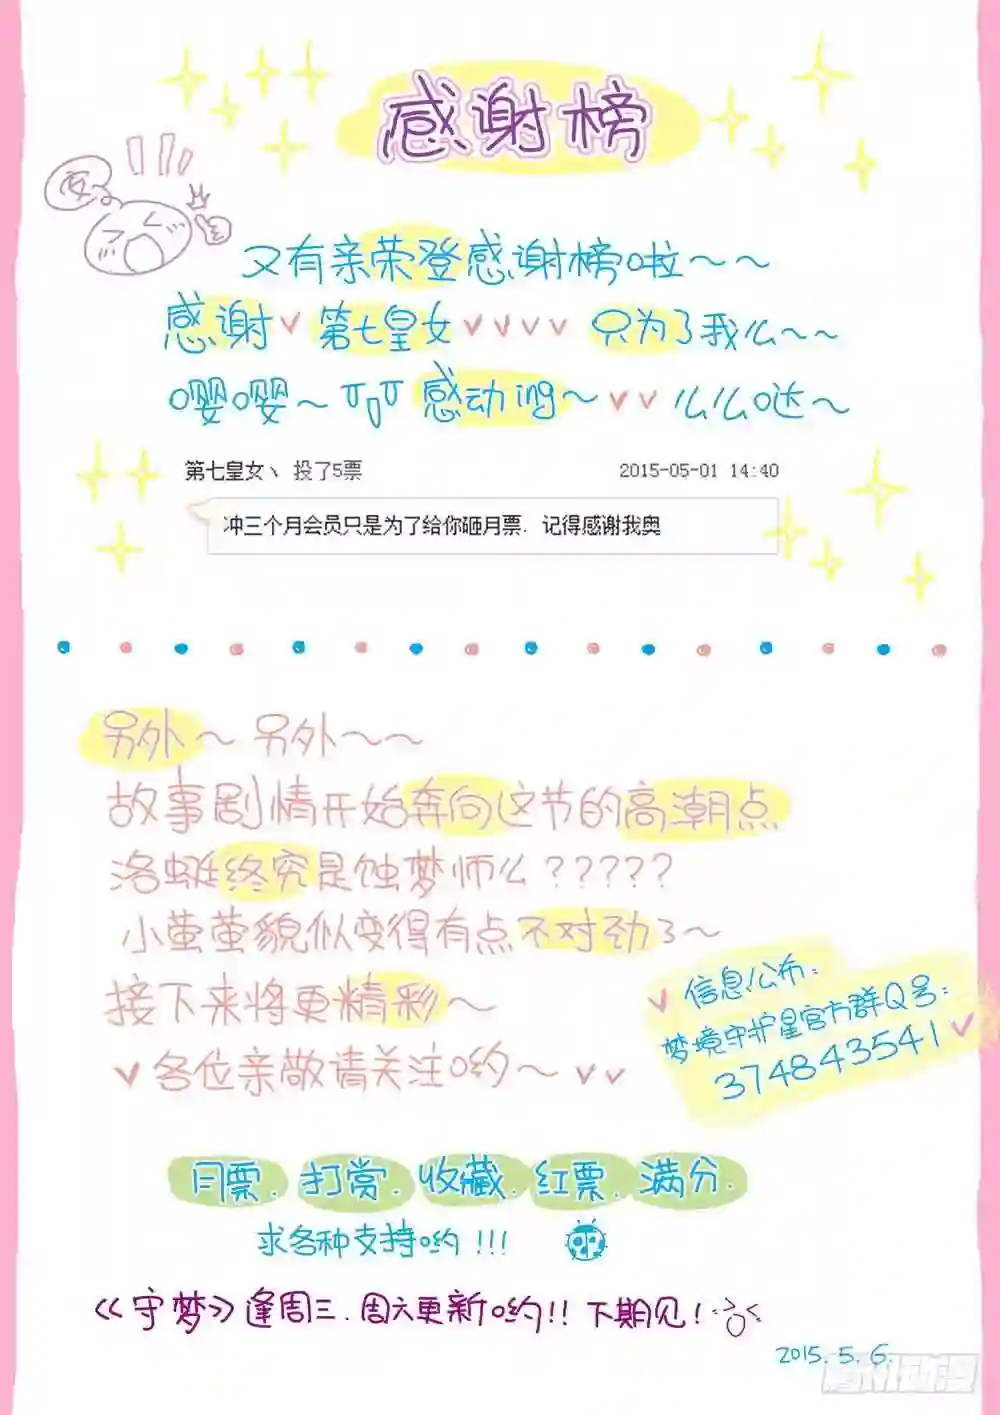 感谢榜
安
又有亲荣登感谢榜啦～～
感谢 第七皇女 只为了我么～～
嘤嘤～ TqT 感动ing～ 么么哒～
第七皇女、 投了5票 2015-05-01 14:40
冲三个月会员只是为了给你砸月票. 记得感谢我奥
另外～ 另外～～
故事剧情开始奔向这节的高潮点
洛蜓终究是蚀梦师么?????
小萤萤貌似变得有点不对劲了～
接下来将更精彩～
各位亲敬请关注哟～
信息公布:
梦境守护星官方群Q号:
374843541
月票. 打赏. 收藏. 红票. 满分.
求各种支持哟!!!
《守梦》逢周三.周六更新哟!! 下期见!
2015.5.6.